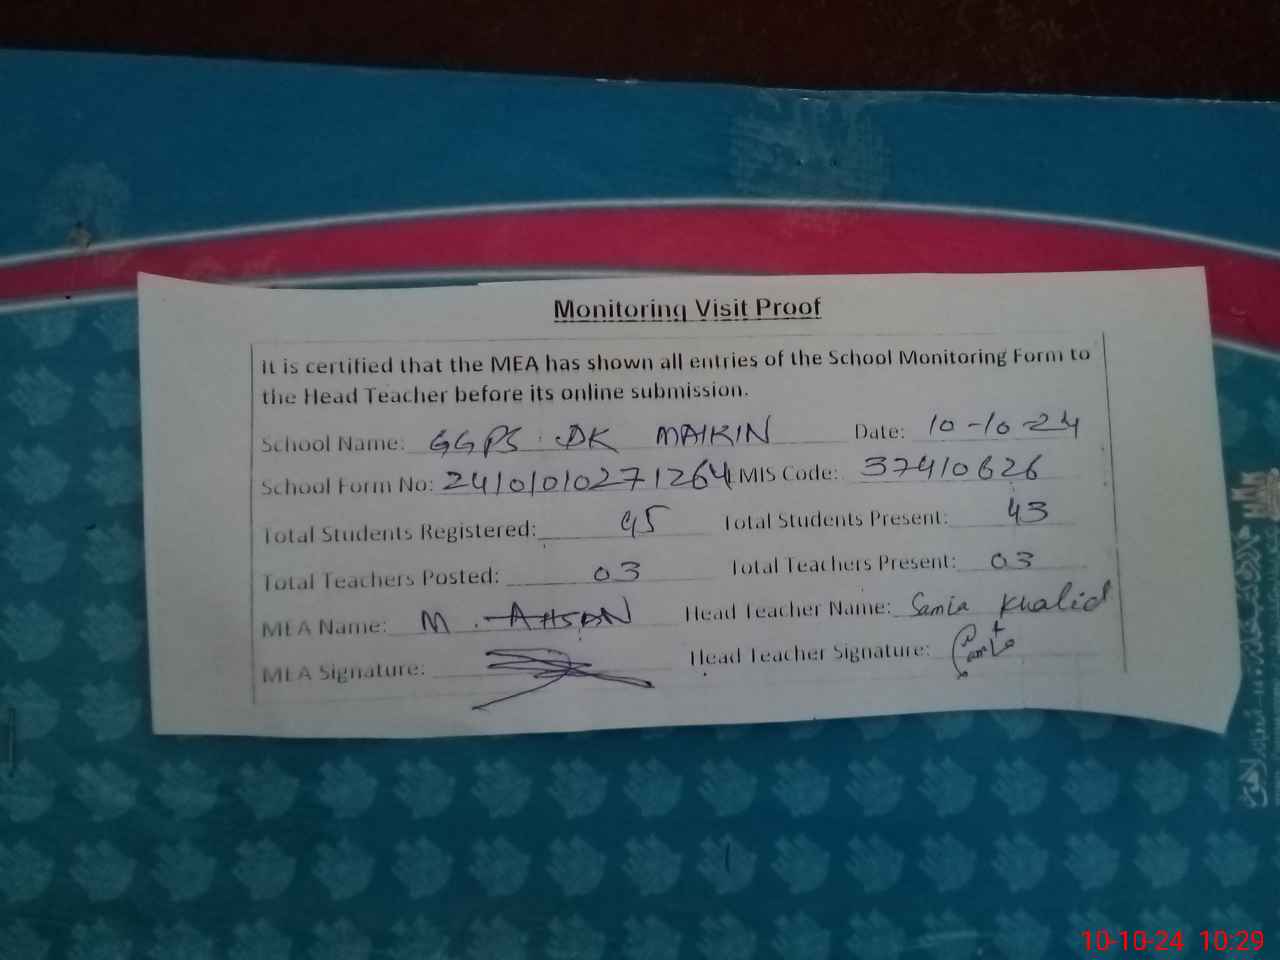 Monitoring Visit Proof
It is certified that the MEA has shown all entries of the School Monitoring Form to
the Head Teacher before its online submission.
School Name: GGPS DK MAIKIN Date: 10-10-24
School Form No: 24101010271264 EMIS Code: 37410626
Total Students Registered: 45 Total Students Present: 43
Total Teachers Posted: 03 Total Teachers Present: 03
MEA Name: M. AHSAN Head Teacher Name: Samia Khalid
MEA Signature: Head Teacher Signature: Samia
10-10-24 10:29